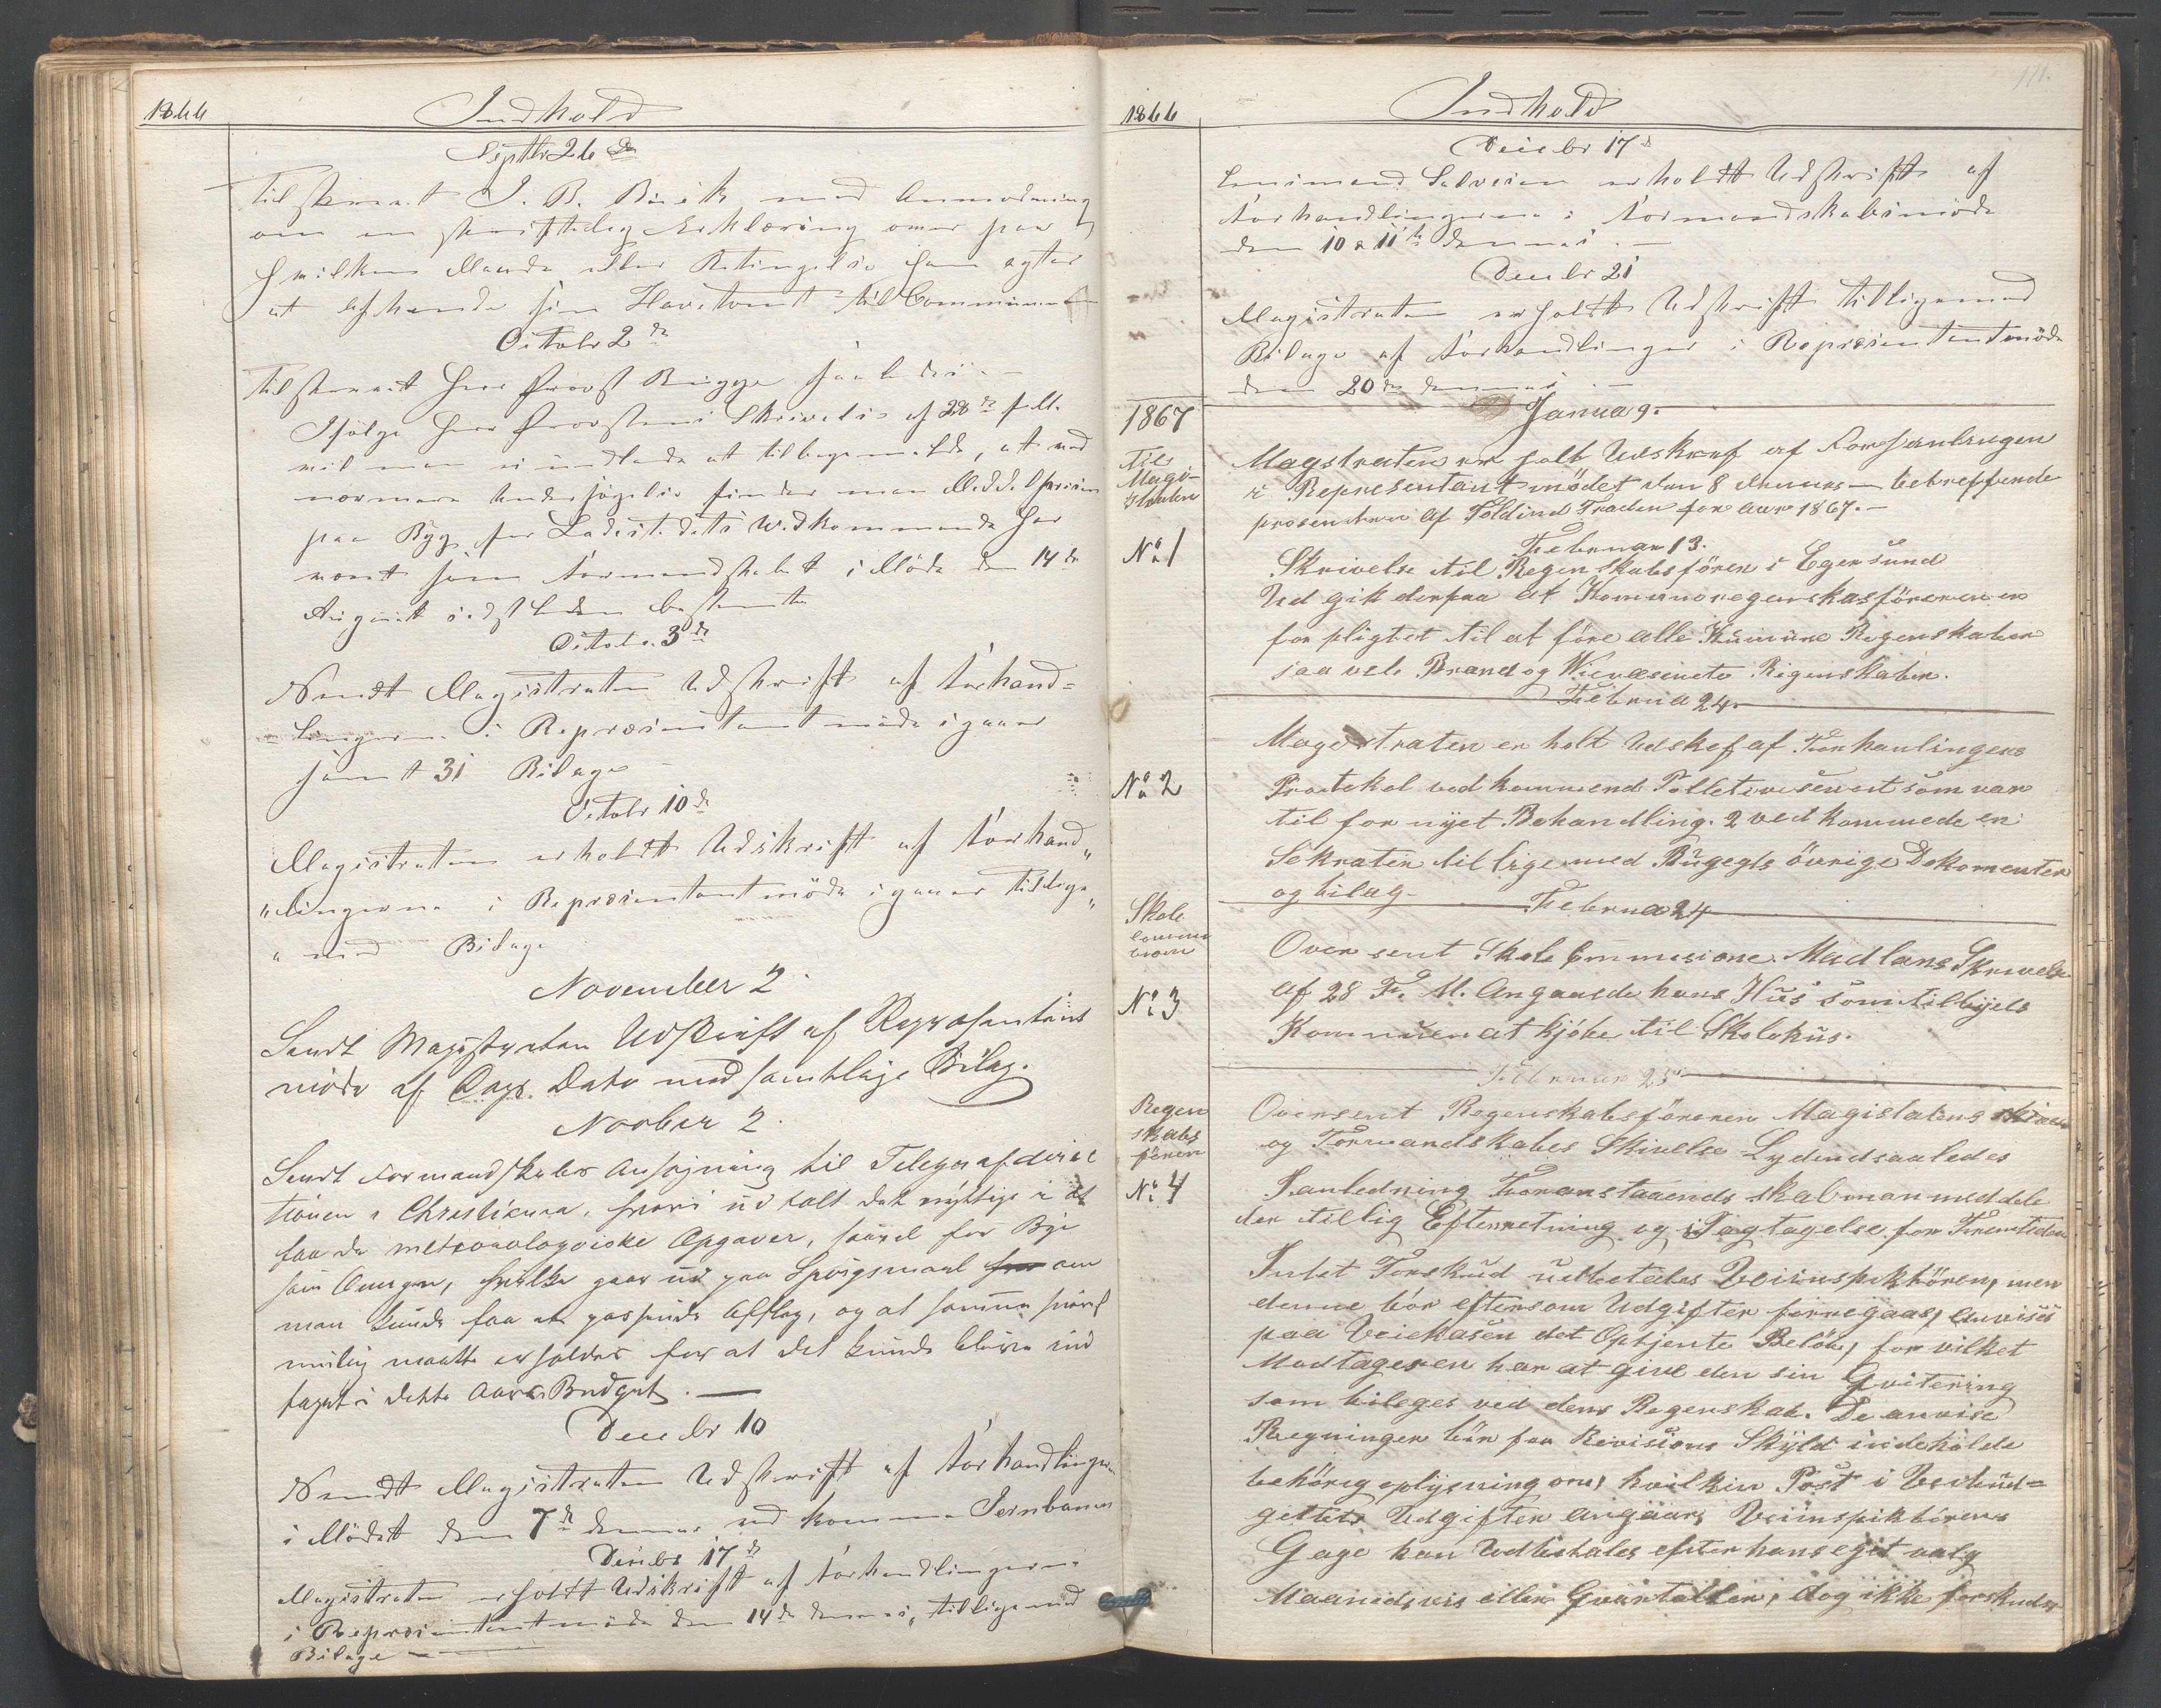 1866
Indhold
Septbr 26de
Tilskrevet I. B. med Anmodning
om en skriftelig Erklæring over paa
hvilken Maade eller Betingelse han agter
at afhænde sin Havetomt til Communen
Octobr 2de
Tilskrevet Herr Provst Bugge saaledes:-
Ifölge Herr Provstens Skrivelse af 28de f.M.
vil man ei undlade at tilbagemelde, at ved
nærmere Undersögelse finder man
paa Byg for Ladestedets Vedkommende har
været som Formandskabet i Möde den 14de
August sidstleden bestemte
Octobr. 3de
Sendt Magistraten Udskrift af Forhand=
=lingerne i Repræsentantmöde igaar
samt 31 Bilage
Octobr 10de
Magistraten erholdt Udskrift af Forhand„
„lingerne i Repræsentantmöde igaar tillige„
„med Bilage
November 2.
Sendt Magistraten Udskrift af Repræsentant
möde af Dags Dato med samtlige Bilag.
Novbr 2.
Sendt Formandskabets Ansøgning til Telegrafdirec
tionen i Christiania, hvori udtalt det nyttige i at
faa de meteorologiske Opgaver, saavel for Bye
som Omegn, hvilke gaar ud paa Spörgsmaal om
man kunde faa et passende Afslag, og at samme snarest
mulig maatte erholdes for at det kunde blive ind
taget i dette Aars Budget. —
Decebr 10
Sendt Magistraten Udskrift af Forhandlingerne
i Mödet den 7de dennes ved komme Jernbanen
Decbr 17de
Magistraten erholdt Udskrift af Forhandlingerne
i Repræsentantmöde den 14de dennes, tilligemed
Bilage
1866
Indhold
181.
Decebr 17d
Lensmand Salvesen erholdt Udskrift af
Forhandlingerne i Formandskabsmöde
den 10 & 11te dennes. —
Decebr 21
Magistraten erholdt Udskrift tilligemed
Bilage af Forhandlinger i Repræsentantmöde
den 20de dennes. —
1867
Janua 9.
Til
Magi-
straten
Magstraten er holt Udskrif af Forhanlingen
i Representantmödet den 8 dennes — betreffende
prosenten af Toldind Traden for aar 1867. —
No 1
Februar 13.
Skrivelse til Regenskabsfören i Egersund
Ud gik derpaa at Komuneregenskasföreren er
for pligtet til at före alle Kumune Regenskaber
saa vel Brand og Vievæsenets Regenskaber.
Februa 24.
No 2
Magestraten er holt Udskrf af Forhanlingens
Protekel ved kommend Tolletvesenet som var
til for nyet Behandling. 2 ved kommede en
Sekraten tillige med Bugegts övrige Dokomenter
og bilag.
Februa 24
Skole
commis
sion
No 3
Over sent Skole Commisione Madlans Skrivelse
af 28 F. M. Angaaede hans Hus som tilbyels
Kommunen at kjöbe til Skolehus.
Februar 25
Regen
skabs
fören
No 4
Oversent Regenskabsföreren Magistatens skrivelse
og Formandskabes Skivelse Lydendsaaledes
I anledning Foranstaaends skal man meddele
der tillig Efterretning og i Tagtagelse for Fremtiden
Intet Forskud udbetales Veiinspektören, men
denne bör eftersom Udgifter forregaas, anvises
paa Veiekasen det Optjente Belöb, for vilket
Modtageren har at give den sin Qvitering
som bileges ved dens Regenskab. De anvise
Regninger bör for Revisions Skyld indeholde
behörig oplysning om, hvilken Post i Veibud=
gettets Udgiften angaar, Veiinspiktörens
Gage kan Udbetales efter hans eget valg
Maanedsvis eller Qvartalter, dog ikke forskuds